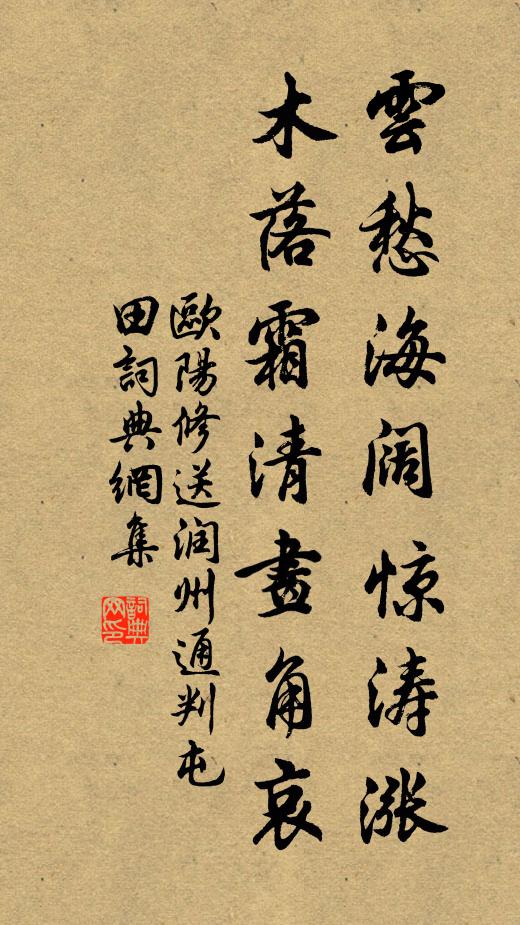 雲愁海阔惊涛漲
木落霜清畫角哀
歐陽修送润州通判屯
田詞典網集
詞典
网印